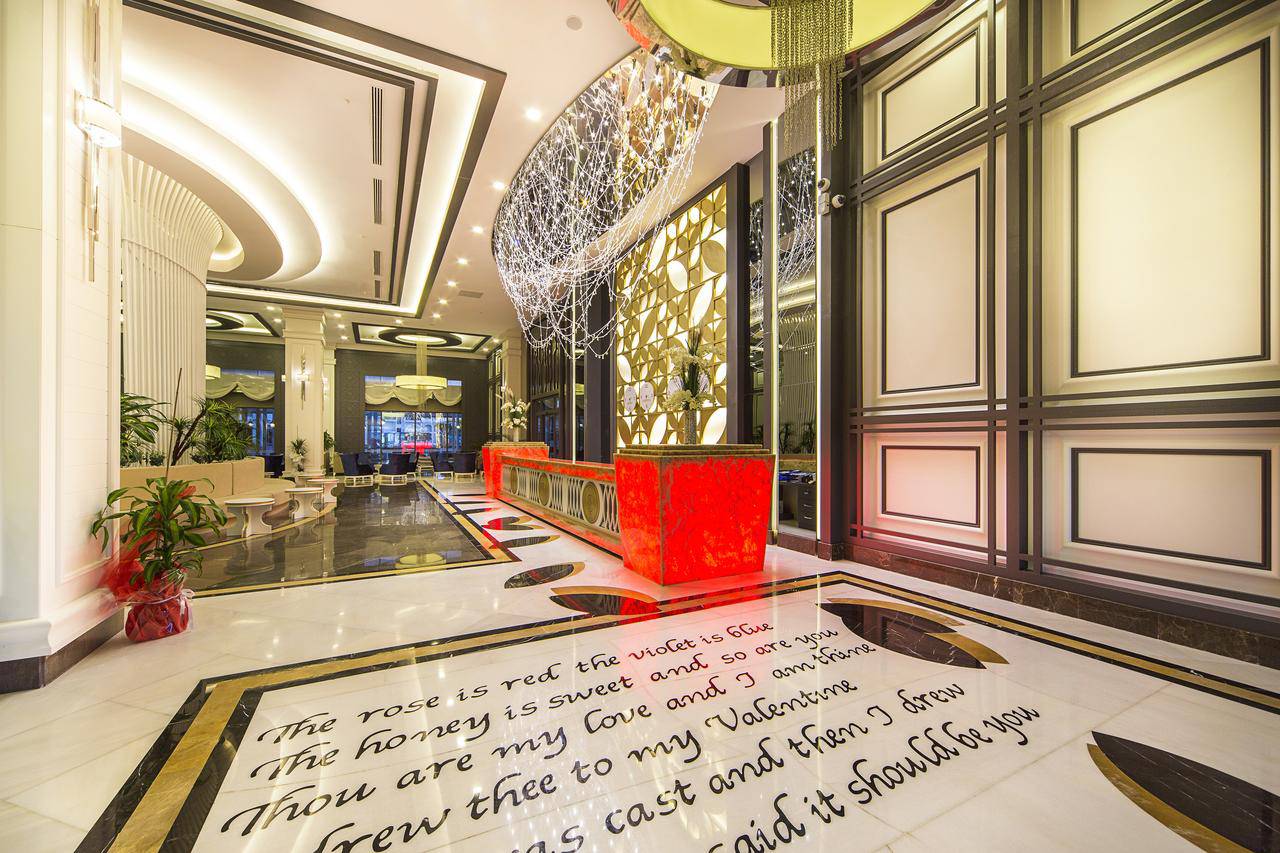 The rose is red the violet is blue
The honey is sweet and so are you
Thou are my love and I am thine
drew thee to my Valentine
cast and then I drew
said it should be you